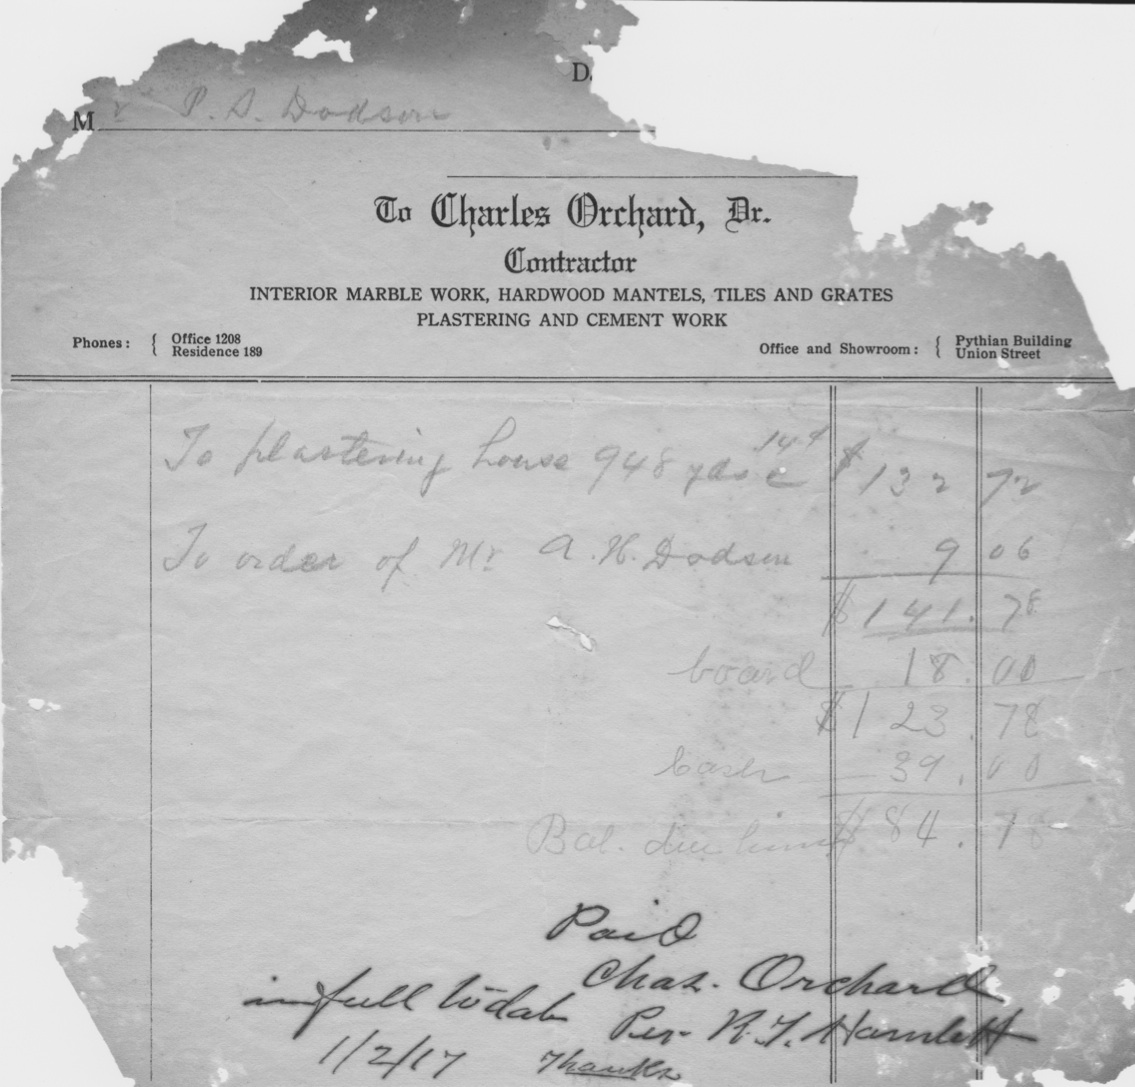 D.
Mr P. S. Dodson
To Charles Orchard, Dr.
Contractor
INTERIOR MARBLE WORK, HARDWOOD MANTELS, TILES AND GRATES
PLASTERING AND CEMENT WORK
Phones: { Office 1208 Residence 189
Office and Showroom: { Pythian Building Union Street
To plastering house 948 yds @ 14¢ $132 72
To order of Mr A. H. Dodson 9 06
$141.78
board 18.00
$123.78
Cash 39.00
Bal. due him $84.78
Paid
Chas. Orchard
in full to date Per R. T. Hamlett
1/2/17 Thanks